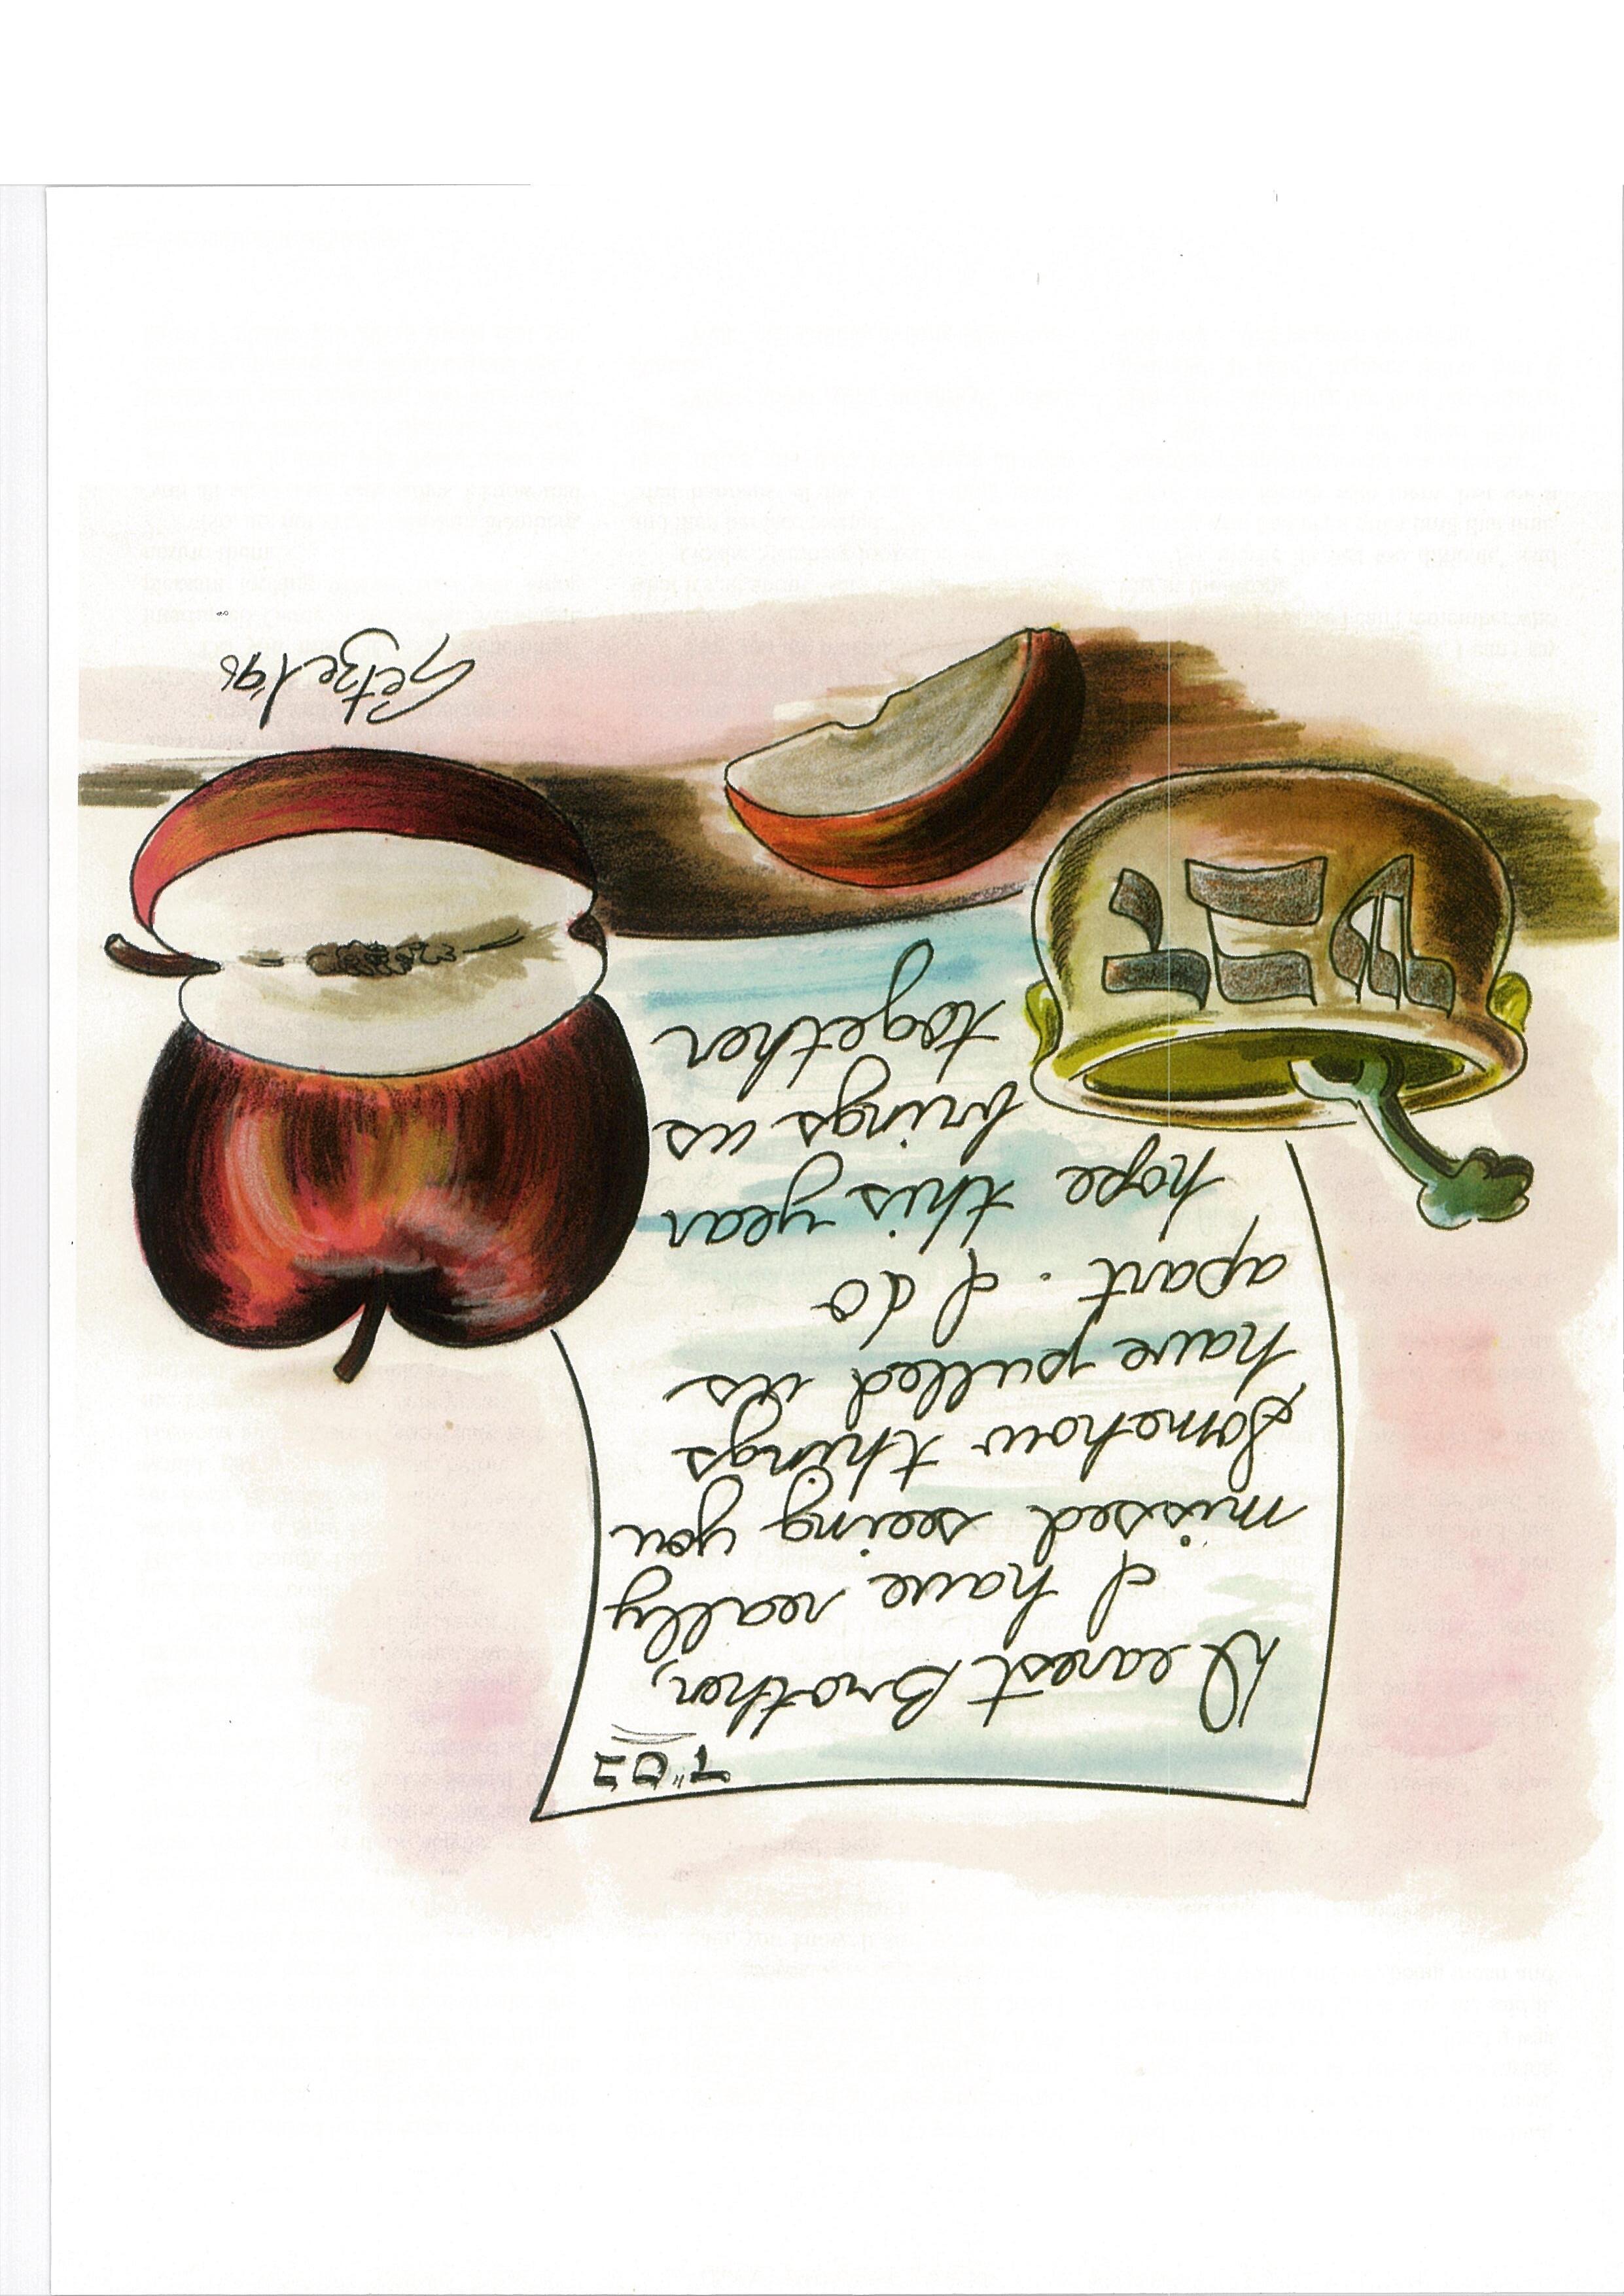 בס"ד
Dearest Brother,
I have really
missed seeing you
Somehow things
have pulled us
apart. I do
hope this year
brings us
together
דבש
Getzel '98